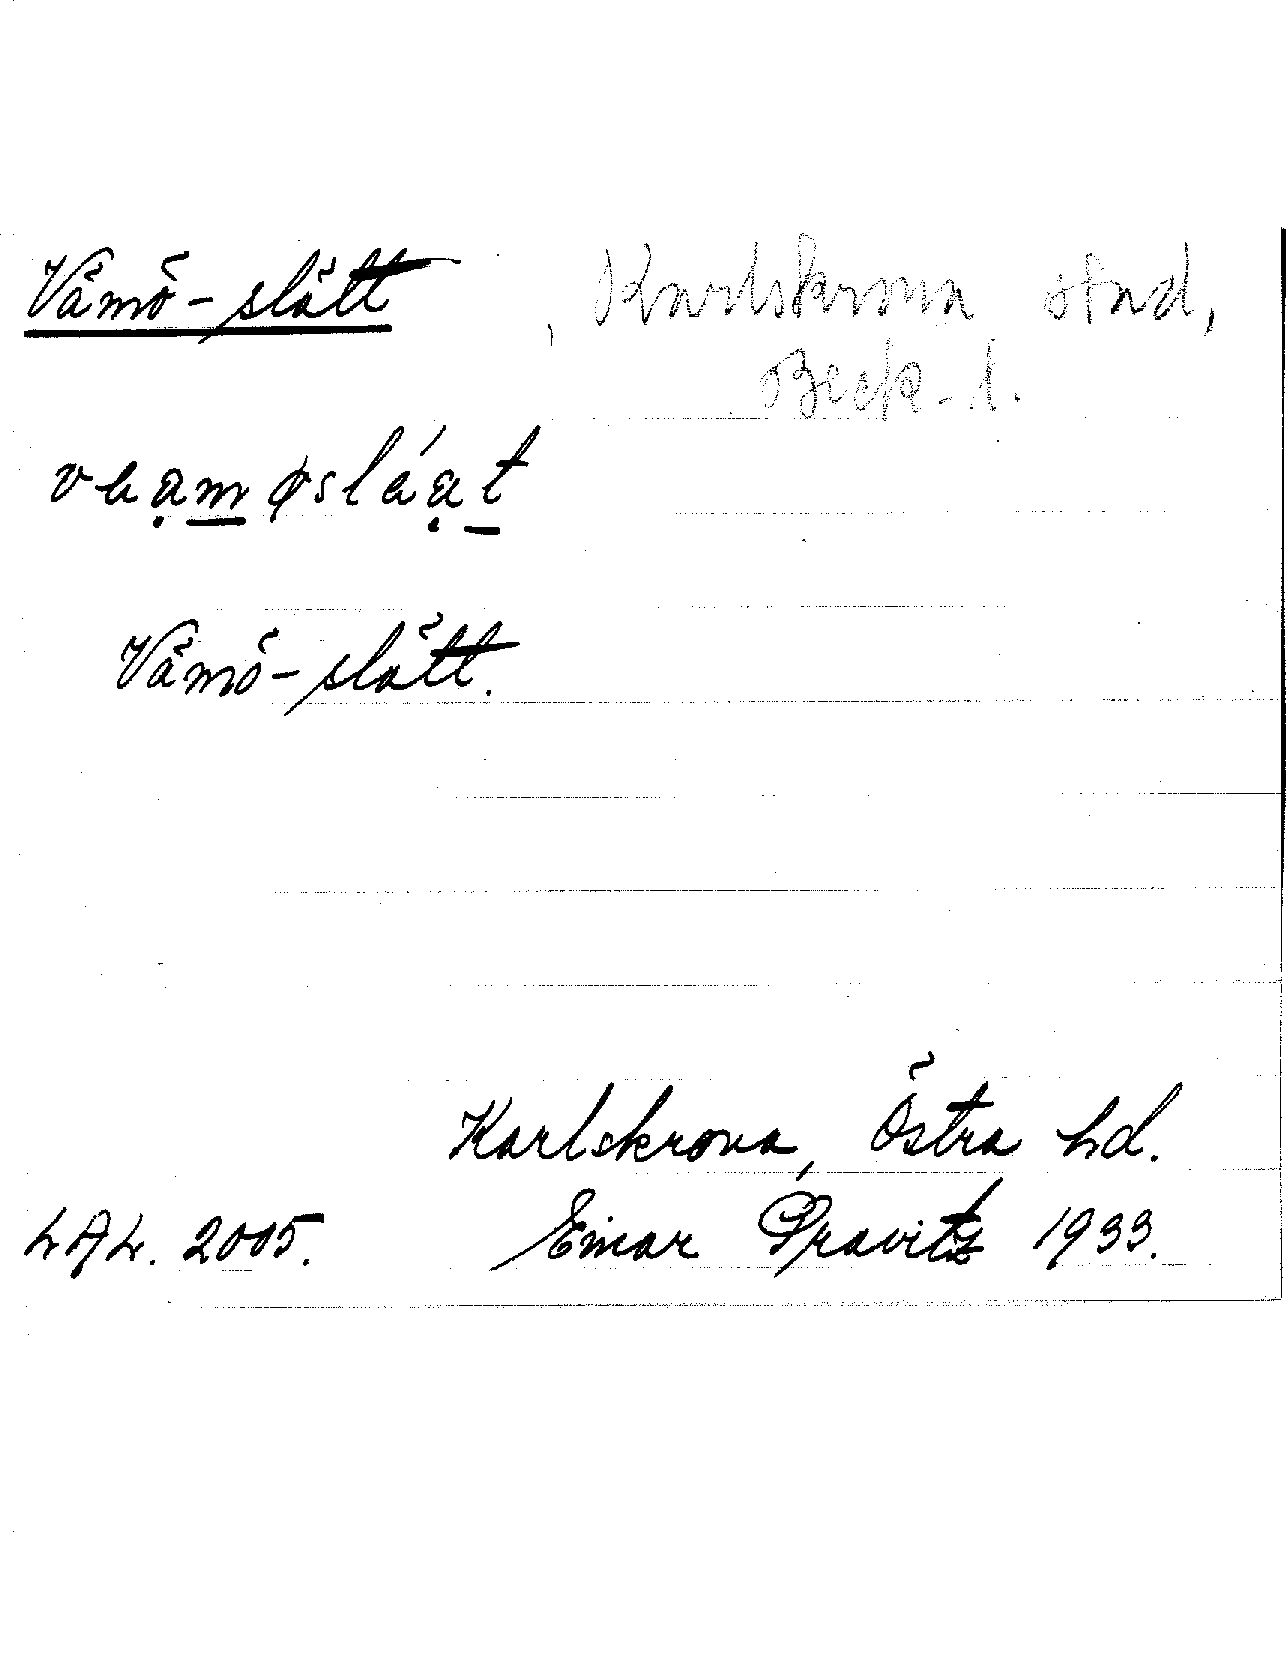 Vämö-slätt, Karlskrona stad,
Bleck. l.
Vämö-slätt.
Karlskrona, Östra hd.
LAL. 2005. Einar Pravitz 1933.